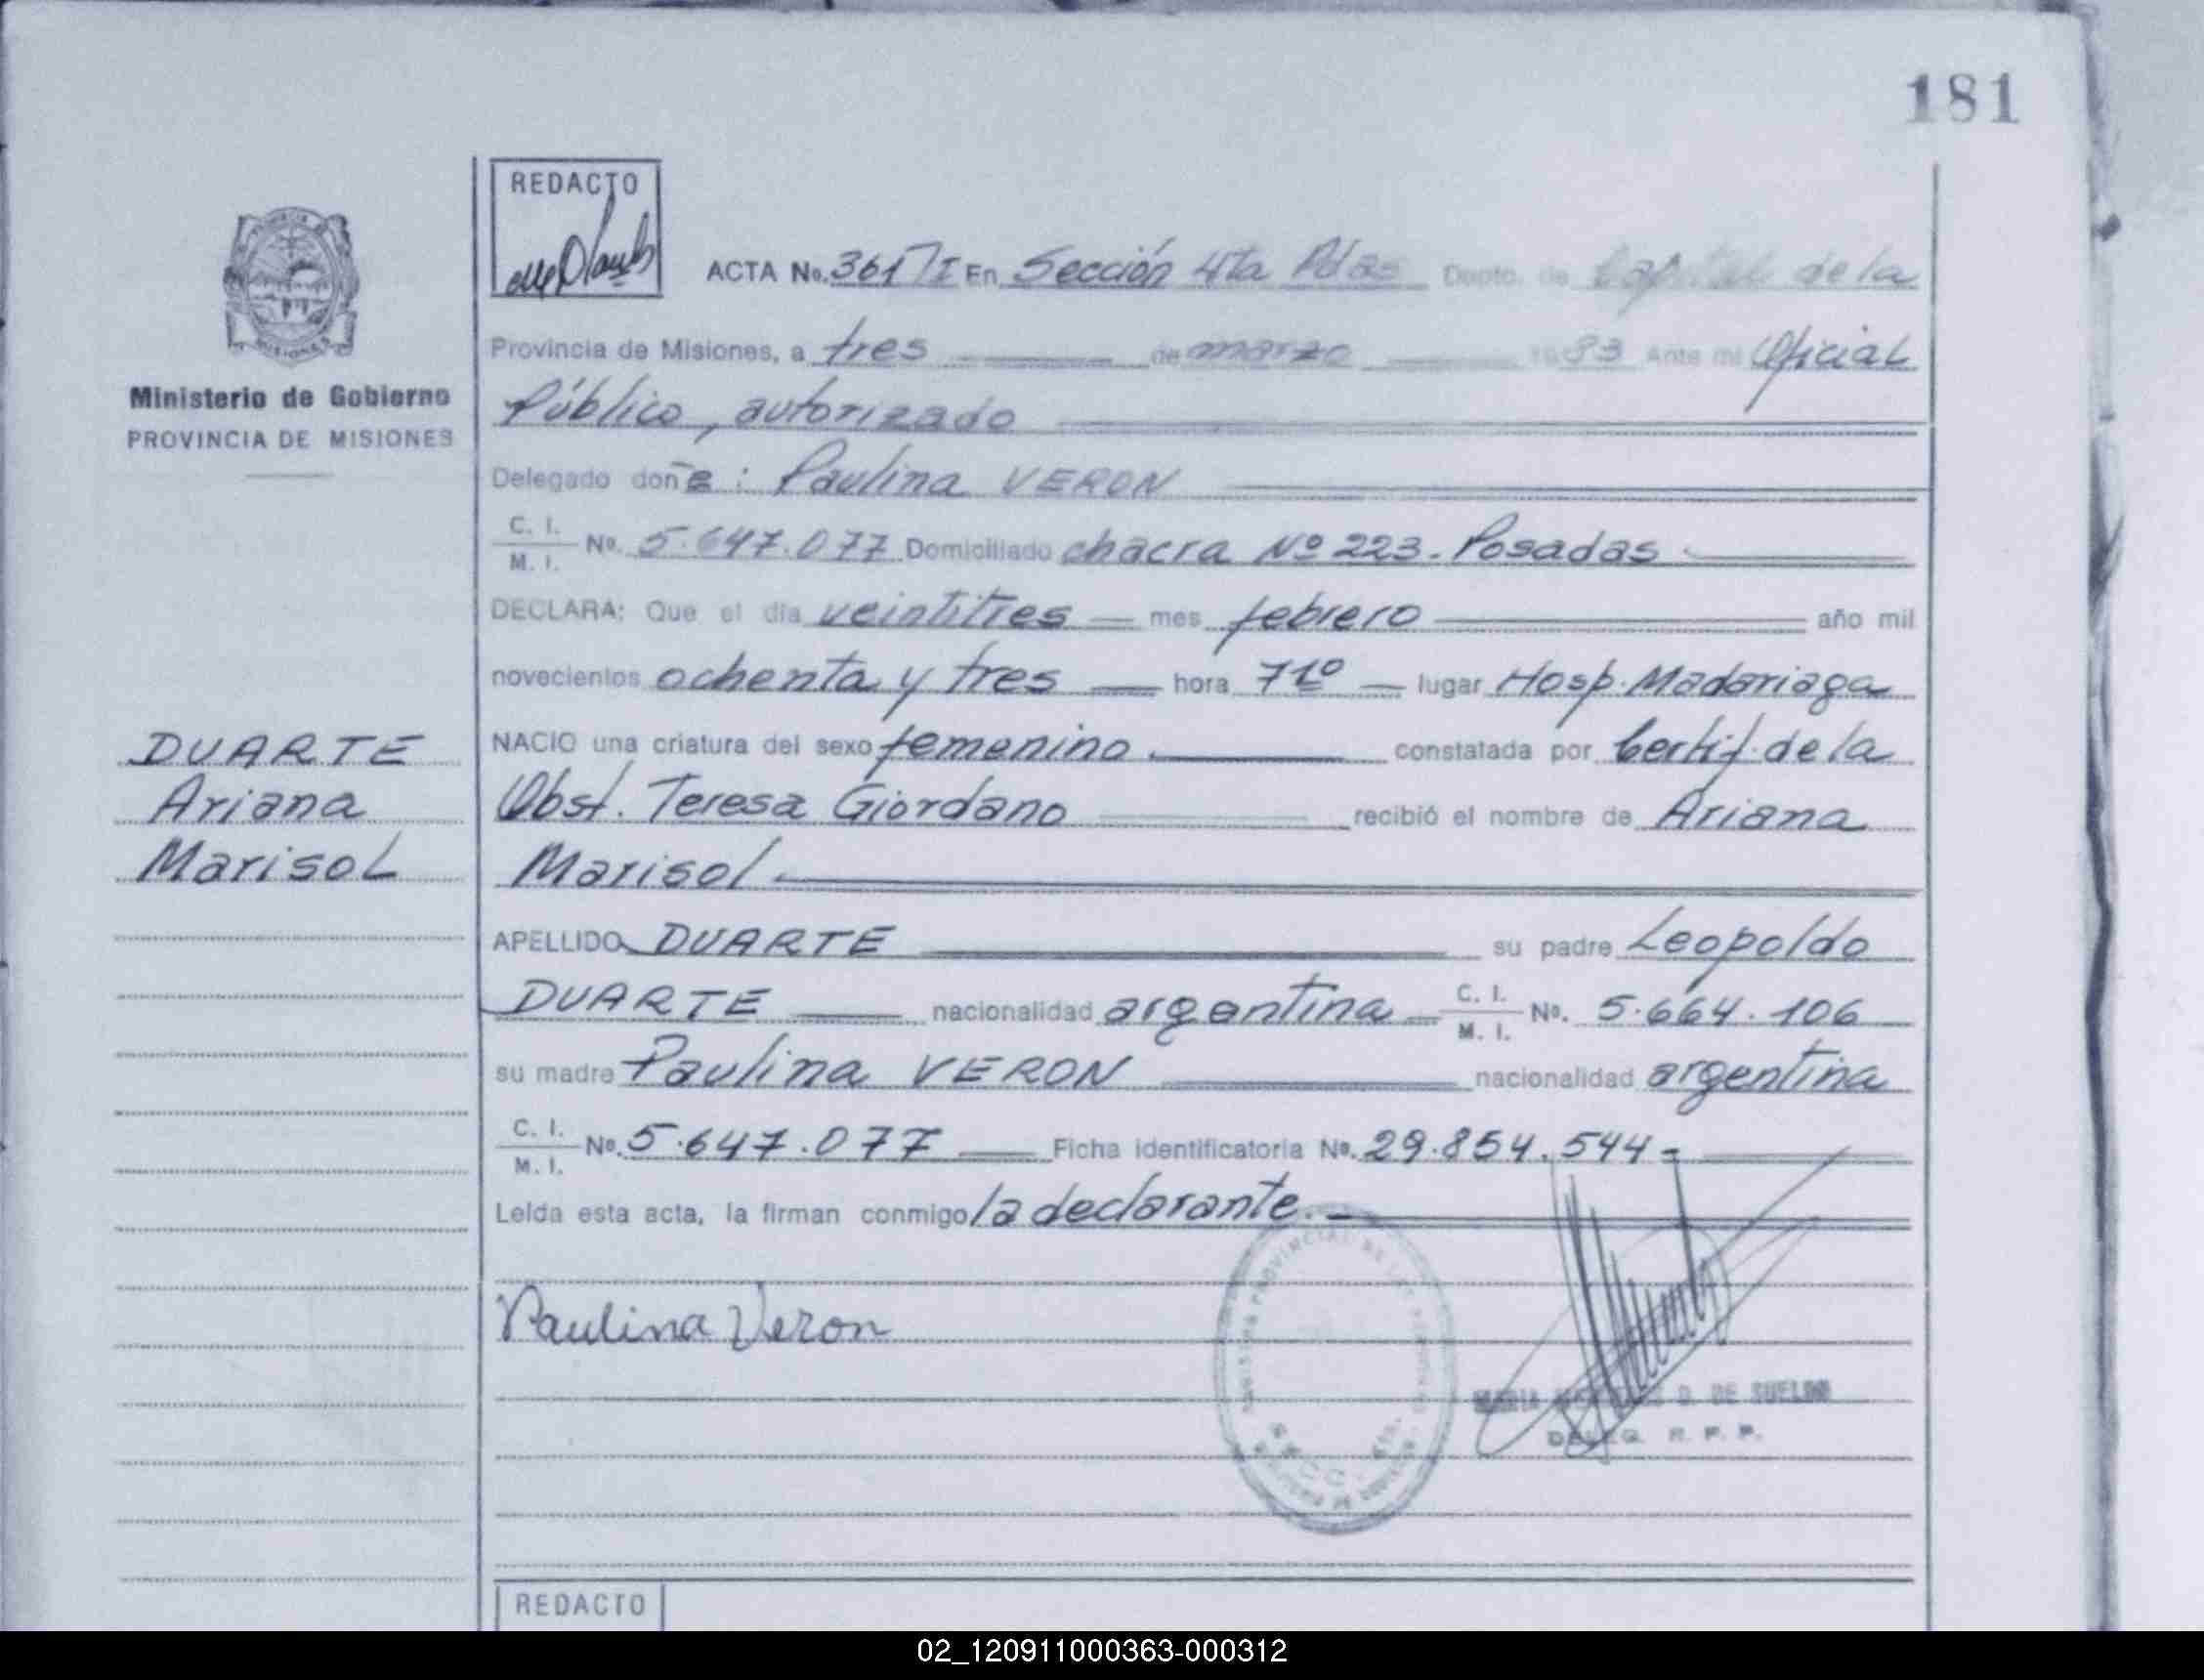 181
REDACTO
ACTA No. 361 I En Sección 4ta Pdas Depto. de Capital de la
Provincia de Misiones, a tres de marzo 1983 Ante mi Oficial
Público, autorizado
Delegado doña: Paulina VERON
C. I. M. I. No. 5.647.077 Domiciliado chacra Nº 223. Posadas
DECLARA: Que el día veintitres mes febrero año mil
novecientos ochenta y tres hora lugar Hosp. Madariaga
NACIO una criatura del sexo femenino constatada por Certif. de la
Obst. Teresa Giordano recibió el nombre de Ariana
Marisol
APELLIDO DUARTE su padre Leopoldo
DUARTE nacionalidad argentina C. I. M. I. No. 5.664.106
su madre Paulina VERON nacionalidad argentina
C. I. M. I. No. 5.647.077 Ficha identificatoria No. 29.854.544-
Leída esta acta, la firman conmigo la declarante.
Paulina Veron
MARIA D. DE SUELDO
DELEG. R. P. P.
REDACTO
Ministerio de Gobierno
PROVINCIA DE MISIONES
DUARTE
Ariana
Marisol
02_120911000363-000312